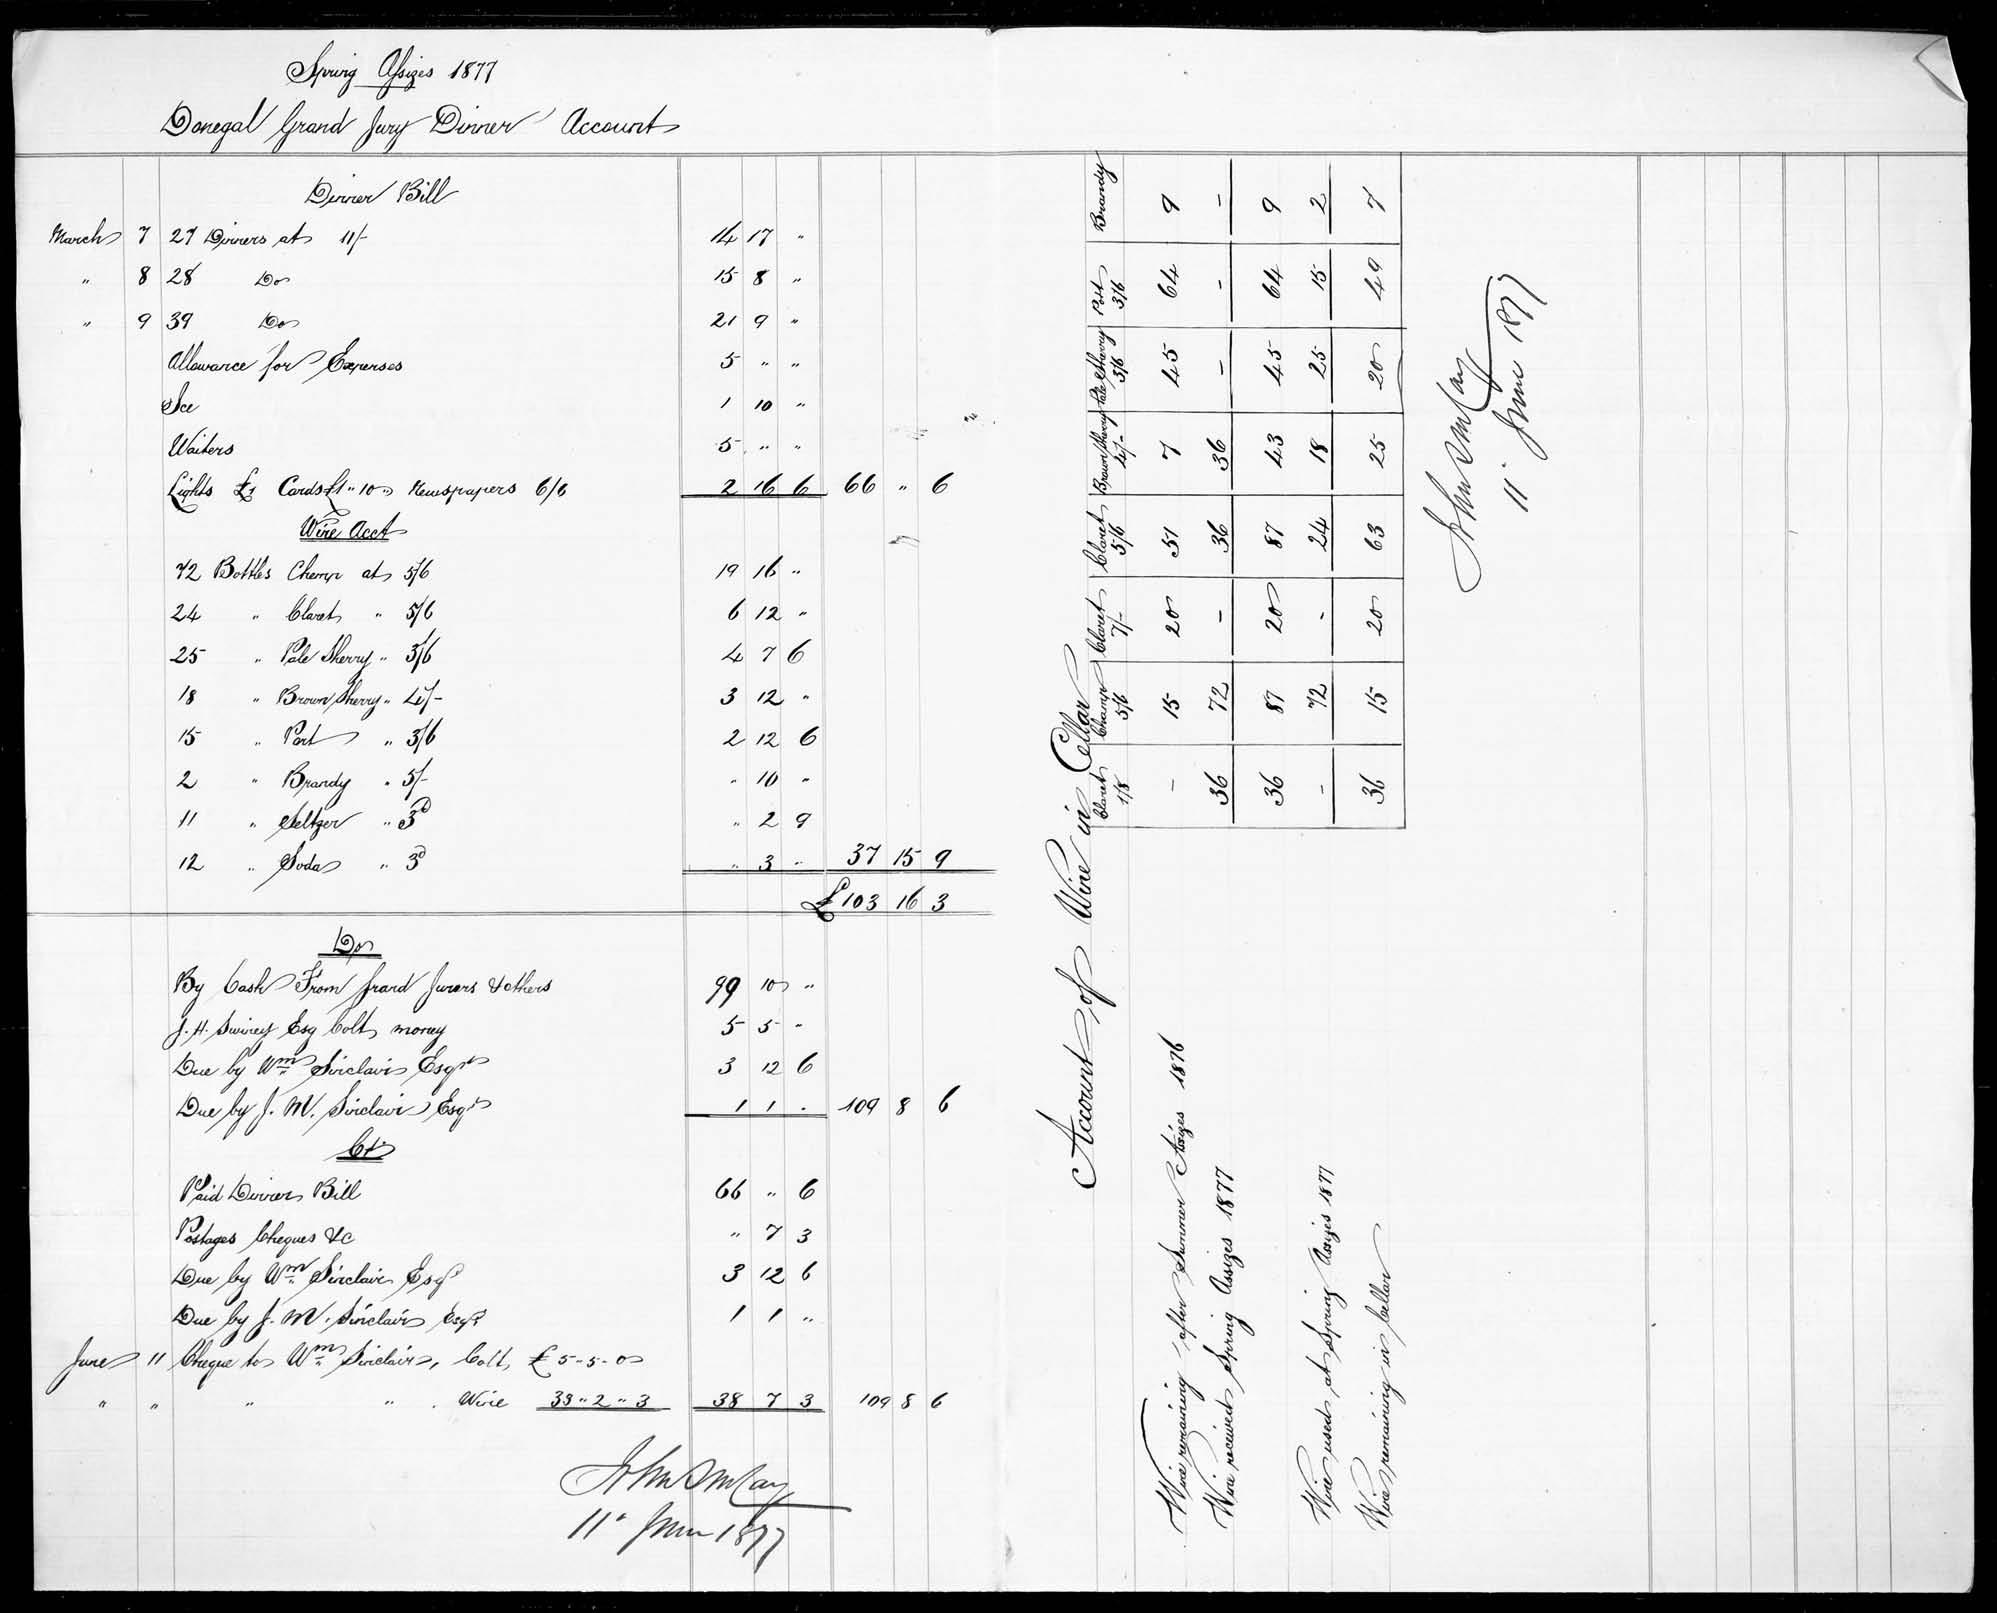 Spring Assizes 1877
Donegal Grand Jury Dinner Account
Dinner Bill
March 7 27 Dinners at 11/- 14 17 "
" 8 28 Do 15 8 "
" 9 39 Do 21 9 "
Allowance for Expenses 5 " "
Ice 1 10 "
Waiters 5 " "
Lights £1 Cards £1 " 10 " Newspapers 6/6 2 16 6 66 " 6
Wine Acct
72 Bottles Champ at 5/6 19 16 "
24 " Claret " 5/6 6 12 "
25 " Pale Sherry " 3/6 4 7 6
18 " Brown Sherry " 4/- 3 12 "
15 " Port " 3/6 2 12 6
2 " Brandy " 5/- " 10 "
11 " Seltzer " 3d " 2 9
12 " Soda " 3d " 3 " 37 15 9
£103 16 3
Dr
By Cash From Grand Jurors & others 99 10 "
J. H. Swiney Esq Colt money 5 5 "
Due by Wm Sinclair Esqr 3 12 6
Due by J. M. Sinclair Esqr 1 1 . 109 8 6
Cr
Paid Dinner Bill 66 " 6
Postages Cheques &c " 7 3
Due by Wm Sinclair Esqr 3 12 6
Due by J. M. Sinclair Esqr 1 1 "
June 11 Cheque to Wm Sinclair, Colt £5-5-0
" " " " . Wine 33 " 2 " 3 38 7 3 109 8 6
John McCay
11 June 1877
Account of Wine in Cellar
Claret 1/8 Champ 5/6 Claret 7/- Claret 5/6 Brown Sherry 4/- Pale Sherry 3/6 Port 3/6 Brandy
Wine remaining after Summer Assizes 1876 - 15 20 51 7 45 64 9
Wine received Spring Assizes 1877 36 72 - 36 36 - - -
36 87 20 87 43 45 64 9
Wine used at Spring Assizes 1877 - 72 - 24 18 25 15 2
Wine remaining in Cellar 36 15 20 63 25 20 49 7
John McCay
11 June 1877